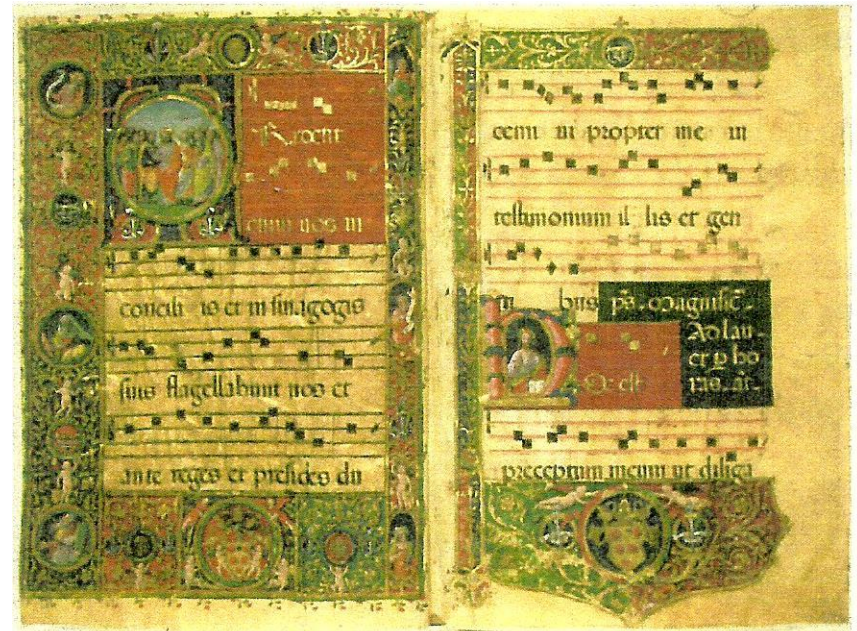 enim uos in
concili is et in sinagogis
suis flagellabunt uos et
ante reges et presides du
cemi ni propter me in
testimonium il lis et gen
ti bus ps. Magnific̄.
Ad lau
et p ho
ras. an̄.
HOc est
preceptum meum ut diliga